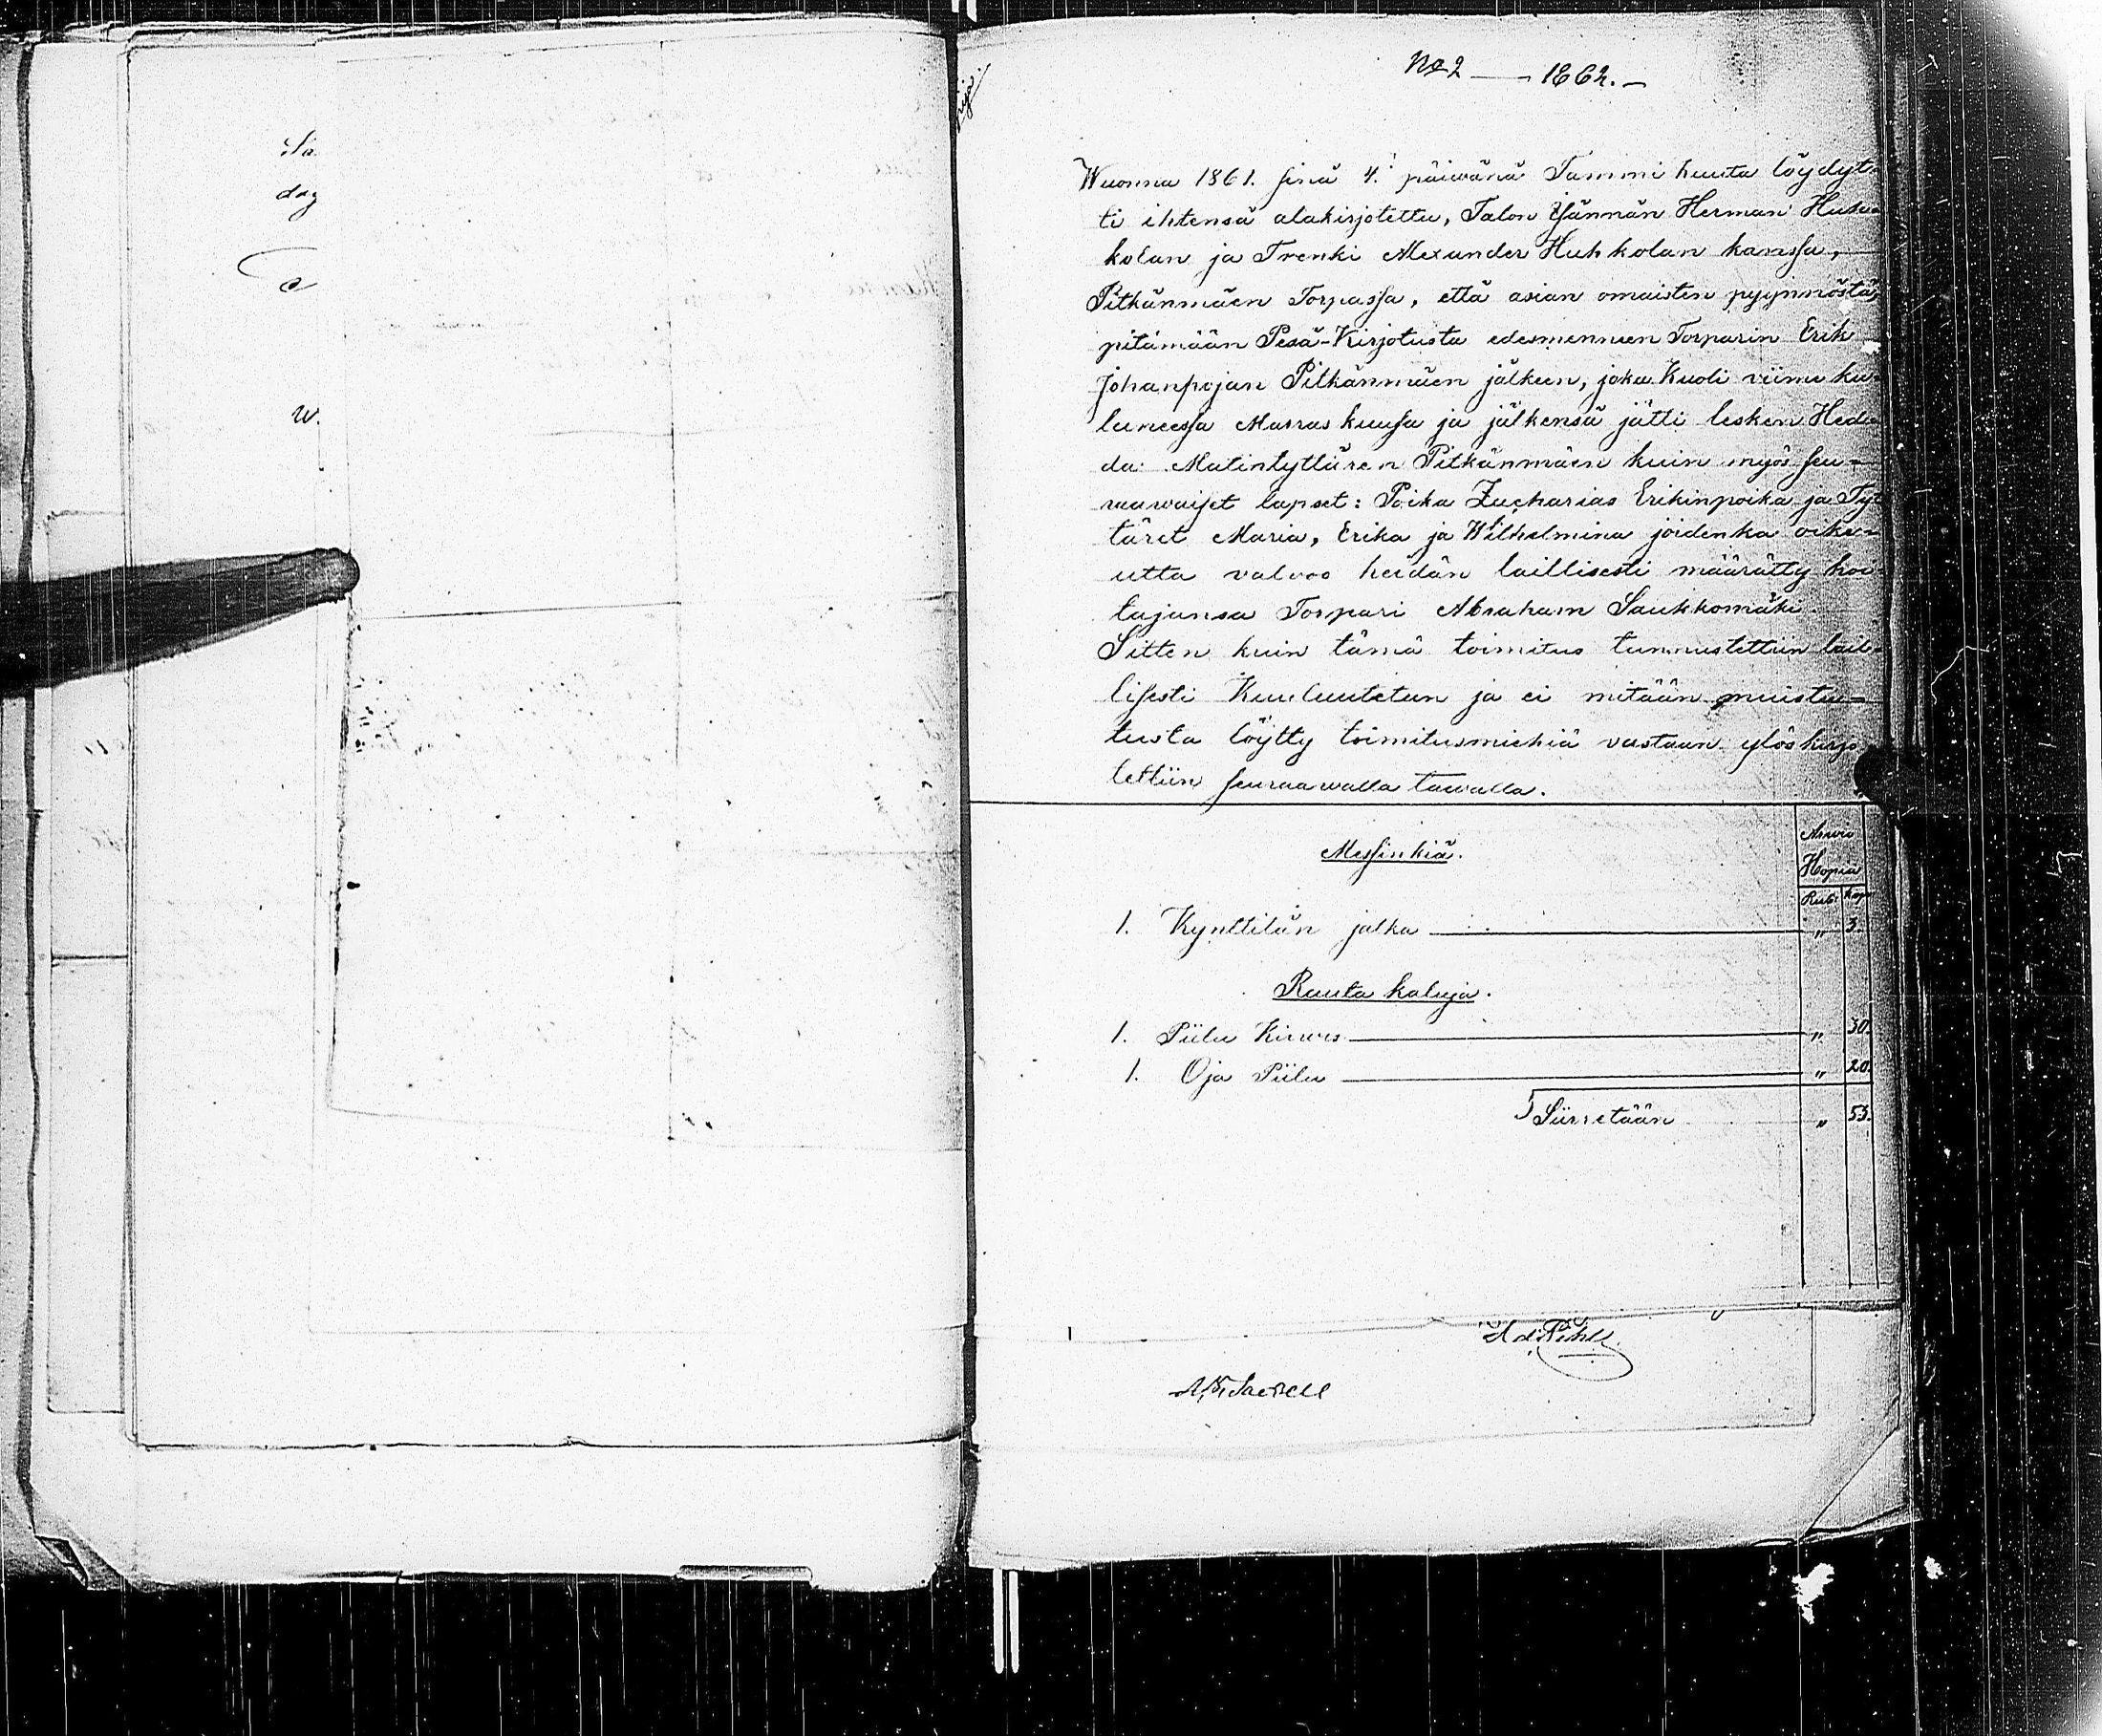 Sa
dag
a
W.
No 2 — 1862. —
Wuonna 1861. sinä 4. päiwänä Tammi kuuta löydyt-
ti ihtensä alakirjotettu, Talon Isännän Herman Huh-
kolan ja Trenki Alexander Huhkolan kanssa,
Pitkänmäen Torpassa, että asian omaisten pyynnöstä,
pitämään Pesä-Kirjotusta edesmenneen Torparin Erik
Johanpojan Pitkänmäen jälkeen, joka Kuoli viime ku-
luneessa Marras kuusa ja jälkensä jätti lesken Hed-
da Matintyttären Pitkänmäen kuin myös seu-
raawaiset lapset: Poika Zacharias Erikinpoika ja Tyt
täret Maria, Erika ja Wilhelmina joidenka oike-
utta valvoo heidän laillisesti määrätty hol-
tajansa Torpari Abraham Saukkomäki.
Sitten kuin tämä toimitus tunnustettiin lail-
lisesti Kuuluutetun ja ei mitään muistu-
tusta löytty toimitusmiehiä vastaan ylöskirjo
tettiin seuraawalla tawalla.
Arwio
Messinkiä.
Hopia
Rub: Kop
1. Kynttilän jalka — " 3.
Rauta kaluja.
1. Piilu Kirwes — " 30.
1. Oja Piilu — " 20.
Siirretään " 53.